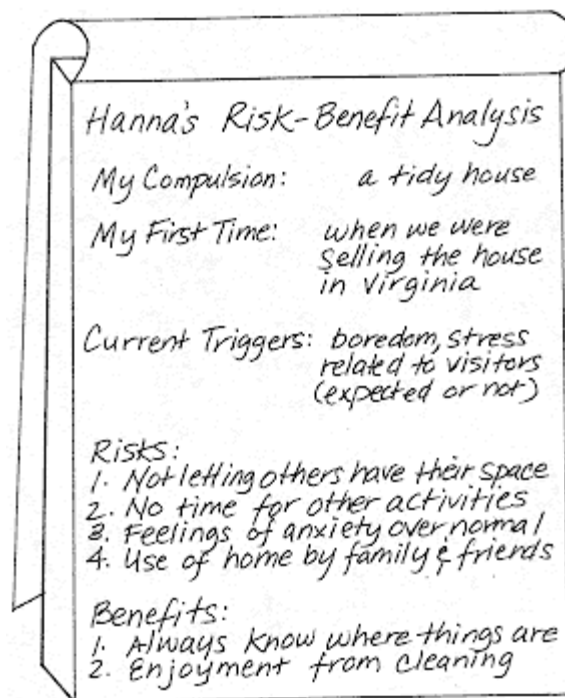 Hanna's Risk-Benefit Analysis
My Compulsion: a tidy house
My First Time: when we were
selling the house
in Virginia
Current Triggers: boredom, stress
related to visitors
(expected or not)
Risks:
1. Not letting others have their space
2. No time for other activities
3. Feelings of anxiety over normal
4. Use of home by family & friends
Benefits:
1. Always know where things are
2. Enjoyment from cleaning